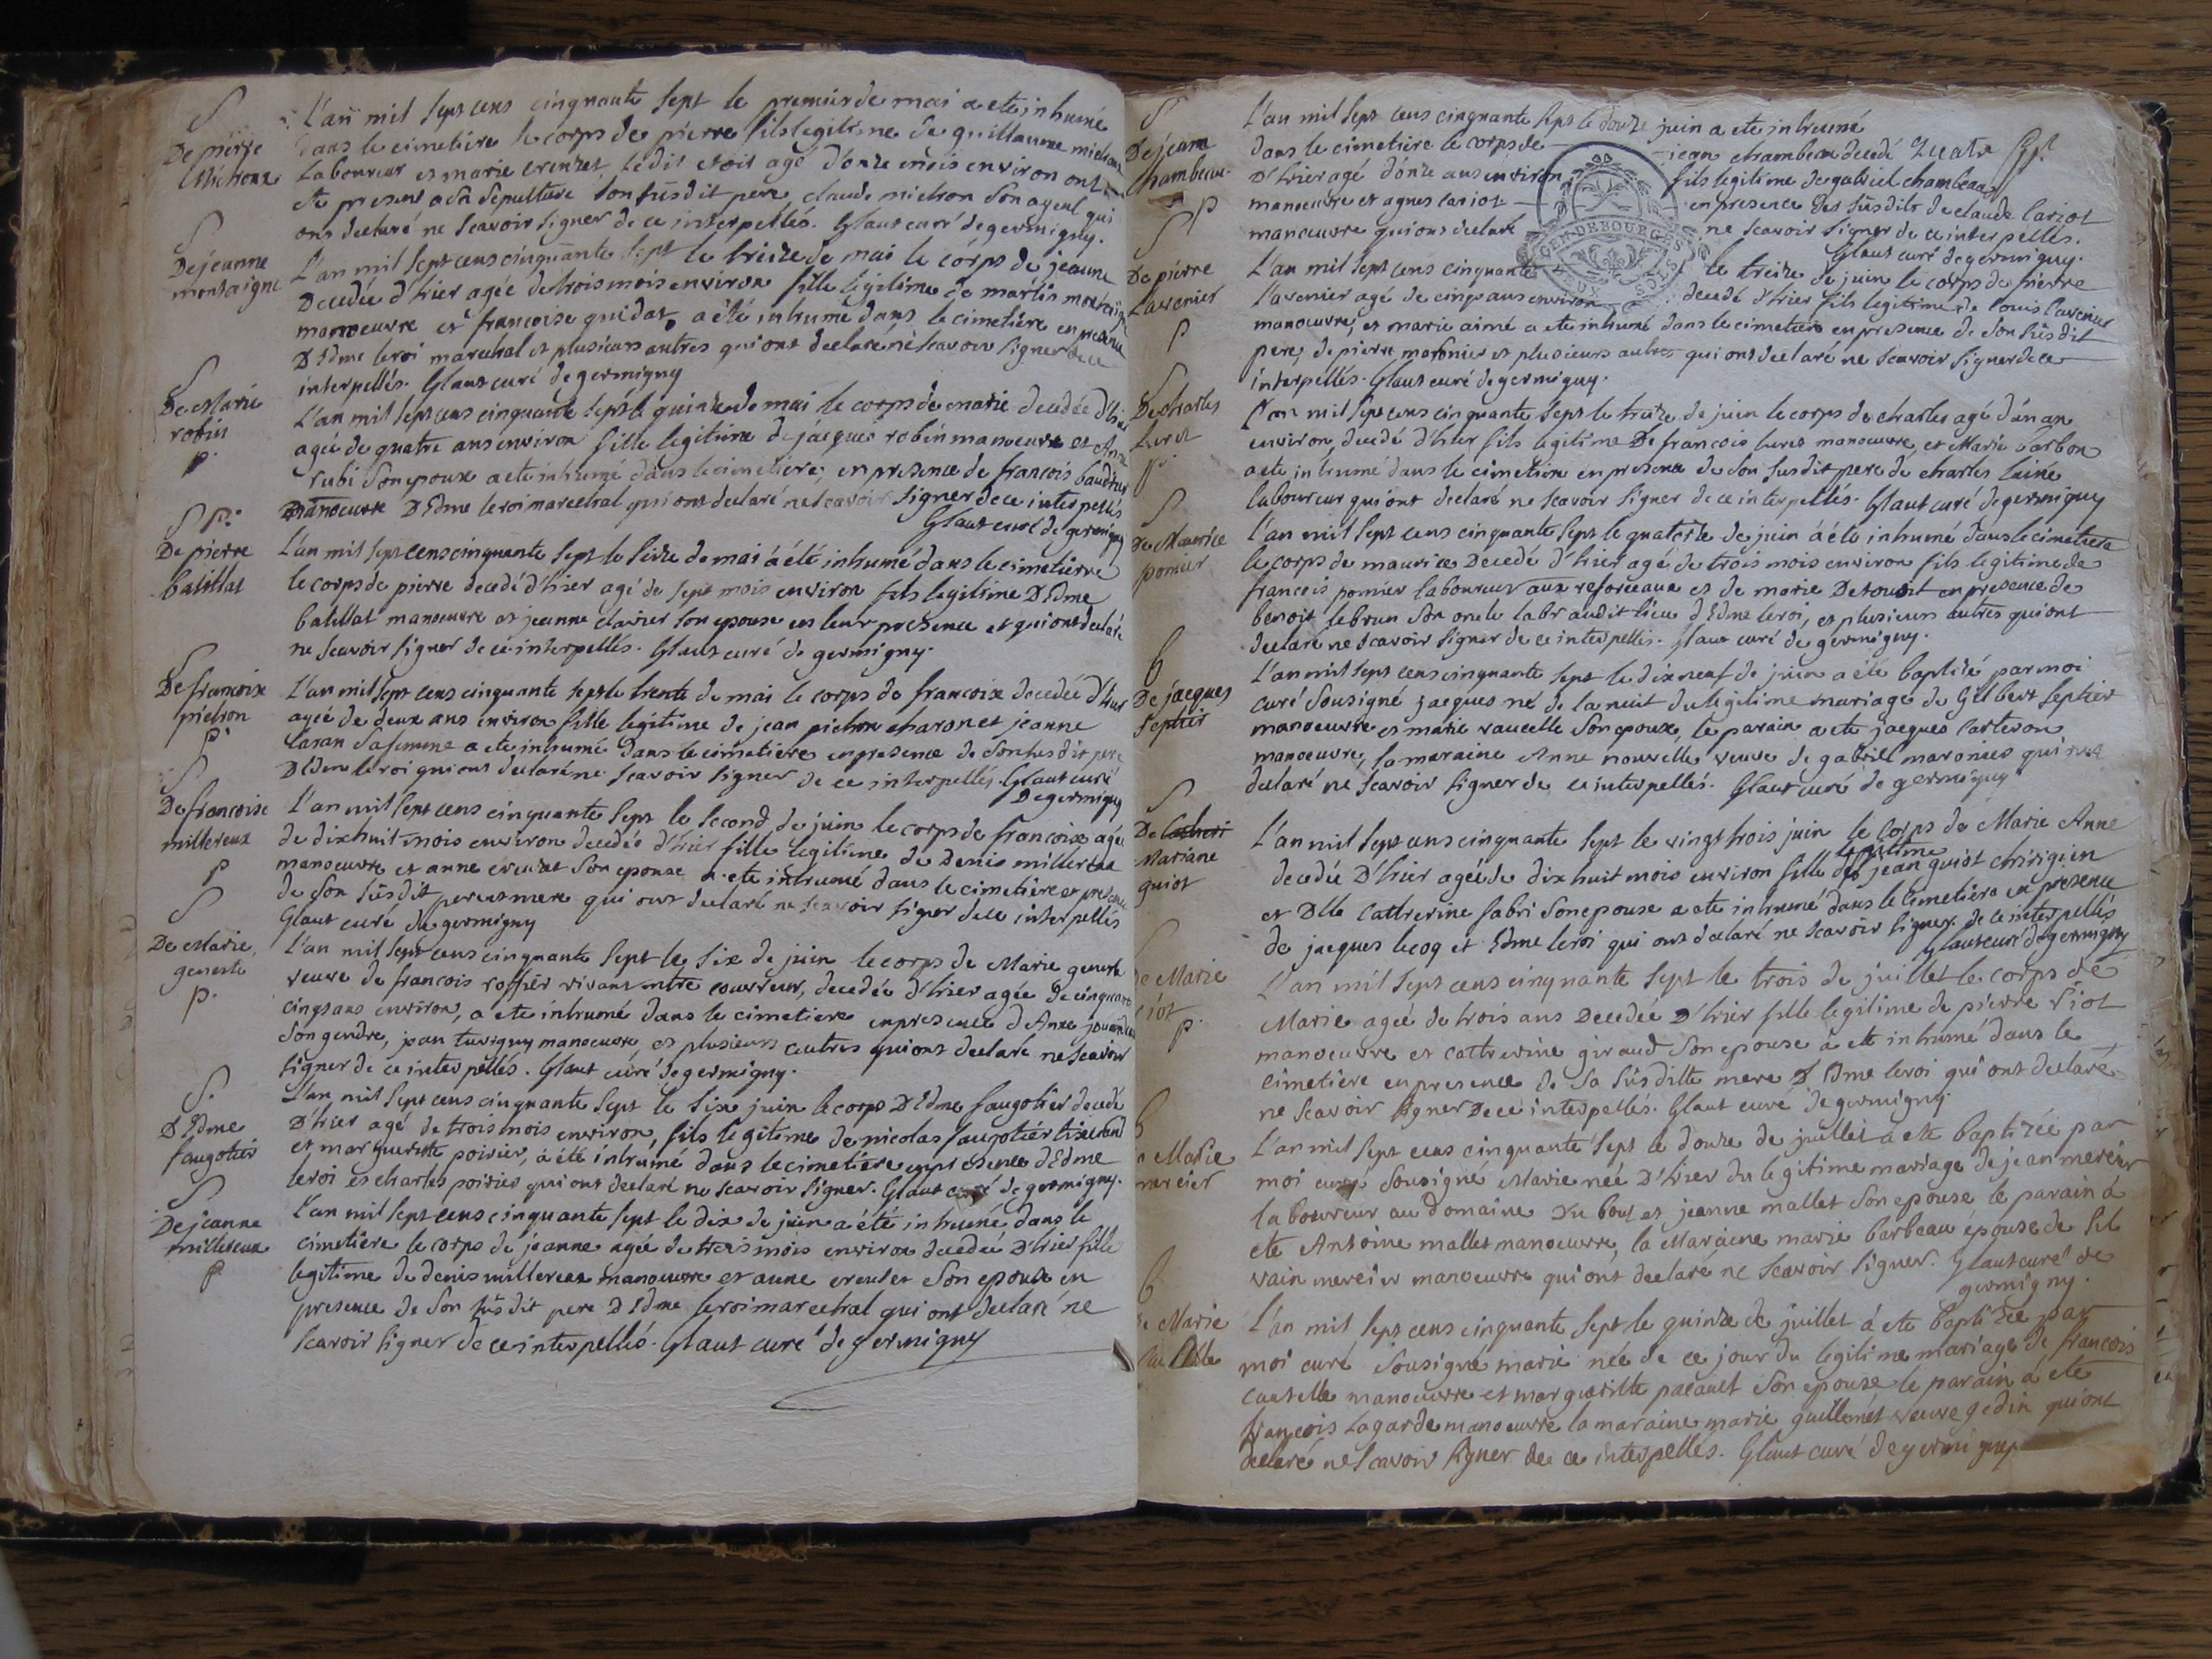 S
De pierre
Michon
L'an mil sept cens cinquante sept le premier de mai a ete inhumé
dans le cimetiere le corps de pierre fils legitime de guillaume michon
Laboureur et marie creuzet, ledit etoit agé d'onze mois environ ont
ete present a sa sepulture son susdit pere, claude michon son ayeul qui
ont declaré ne scavoir signer de ce interpellés. Glaut curé de germigny.
S
De jeanne
montaigne
L'an mil sept cens cinquante sept le treize de mai le corps de jeanne
Decedée d'hier agée de trois mois environ fille legitime de martin montaigne
manoeuvre et francoise guidat, a été inhumé dans le cimetiere en presence
D'Edme leroi marechal et plusieurs autres qui ont declaré ne scavoir signer de ce
interpellés. Glaut curé de germigny
S
De Marie
robin
p.
L'an mil sept cens cinquante sept le quinze de mai le corps de marie decedée d'hier
agée de quatre ans environ fille legitime de jacques robin manoeuvre et Anne
rubi son epouse a ete inhumé dans le cimetiere, en presence de francois
manoeuvre D'Edme leroi marechal qui ont declaré ne scavoir signer de ce interpellés
Glaut curé de germigny
S p.
De pierre
balillat
L'an mil sept cens cinquante sept le seize de mai a été inhumé dans le cimetierre
le corps de pierre decedé d'hier agé de sept mois environ fils legitime D'Edme
balillat manoeuvre et jeanne clavier son epouse en leur presence et qui ont declaré
ne scavoir signer de ce interpellés. Glaut curé de germigny.
S
De francoise
pichon
p.
L'an mil sept cens cinquante sept le trente de mai le corps de francoise decedée d'hier
agée de deux ans environ fille legitime de jean pichon charon et jeanne
laran sa femme a ete inhumé dans le cimetiere en presence de son susdit pere
D'Edme leroi qui ont declaré ne scavoir signer de ce interpellés. Glaut curé
De germigny
S
De francoise
millereux
p
L'an mil sept cens cinquante sept le second de juin le corps de francoise agée
de dix huit mois environ decedée d'hier fille legitime de Denis millereux
manoeuvre et anne creuzet son epouse a ete inhumé dans le cimetiere en presence
de son susdit pere et mere qui ont declaré ne scavoir signer de ce interpellés
Glaut curé de germigny
S
De Marie
geneste
p.
L'an mil sept cens cinquante sept le six de juin le corps de Marie geneste
veuve de francois roffier vivant mtre couvreur, decedée d'hier agée de cinquante
cinq ans environ, a ete inhumé dans le cimetiere en presence d'Anne
son gendre, jean manoeuvre et plusieurs autres qui ont declaré ne scavoir
signer de ce interpellés. Glaut curé de germigny.
S.
D'Edme
faugotier
L'an mil sept cens cinquante sept le six juin le corps D'Edme faugotier decedé
D'hier agé de trois mois environ, fils legitime de nicolas faugotier tixerand
et marguerite poirier, a été inhumé dans le cimetiere en presence d'Edme
leroi et charles poirier qui ont declaré ne scavoir signer. Glaut curé de germigny.
S
De jeanne
millereux
p
L'an mil sept cens cinquante sept le dix de juin a été inhumé dans le
cimetiere le corps de jeanne agée de trois mois environ decedée D'hier fille
legitime de denis millereux manoeuvre et anne creuzet son epouse en
presence de son susdit pere D'Edme leroi marechal qui ont declaré ne
scavoir signer de ce interpellés. Glaut curé de germigny
S
De jeann
Chambeau
p
L'an mil sept cens cinquante sept le douze juin a ete inhumé
dans le cimetiere le corps de jean chambeau decedé
D'hier agé d'onze ans environ fils legitime de gabriel chambeau
manoeuvre et agnes lariot en presence des susdits de claude lariot
manoeuvre qui ont declaré ne scavoir signer de ce interpellés.
Glaut curé de germigny.
GEN. DE BOURGES
S
De pierre
Lavenier
p
L'an mil sept cens cinquante le treize de juin le corps de pierre
Lavenier agé de cinq ans environ decedé d'hier fils legitime de louis lavenier
manoeuvre, et marie aimé a ete inhumé dans le cimetiere en presence de son susdit
pere, de pierre maronier et plusieurs autres qui ont declaré ne scavoir signer de ce
interpellés. Glaut curé de germigny.
S
De charles
luret
p.
L'an mil sept cens cinquante sept le treize de juin le corps de charles agé d'un an
environ, decedé d'hier fils legitime De francois luret manoeuvre, et Marie barbon
a ete inhumé dans le cimetiere en presence de son susdit pere de charles laine
laboureur qui ont declaré ne scavoir signer de ce interpellés. Glaut curé de germigny
S
De Maurice
pomier
L'an mil sept cens cinquante sept le quatorze de juin a été inhumé dans le cimetiere
le corps de maurice Decedé d'hier agé de trois mois environ fils legitime de
francois pomier laboureur aux reforceaux et de marie Detouet en presence de
benoit lebrun son oncle labr audit lieu d'Edme leroi, et plusieurs autres qui ont
declaré ne scavoir signer de ce interpellés. Glaut curé de germigny.
b
De jacques
septier
L'an mil sept cens cinquante sept le dix neuf de juin a été baptizé par moi
curé sousigné jacques né de la nuit du legitime mariage de Gilbert septier
manoeuvre et marie vaucelle son epouse, le parain a ete jacques carteron
manoeuvre, la maraine Anne nouvelle veuve de gabriel maronier qui ont
declaré ne scavoir signer de ce interpellés. Glaut curé de germigny
S
De Catheri
Mariane
guiot
L'an mil sept cens cinquante sept le vingt trois juin le corps de Marie Anne
decedée D'hier agée de dix huit mois environ fille legitime de jean guiot chirigien
et Dlle Catherine fabri son epouse a ete inhumé dans le cimetiere en presence
de jacques lecoq et Edme leroi qui ont declaré ne scavoir signer de ce interpellés
Glaut curé de germigny
S
de Marie
riot
p.
L'an mil sept cens cinquante sept le trois de juillet le corps de
Marie agée de trois ans Decedée D'hier fille legitime de pierre riot
manoeuvre et catherine giraud son epouse a ete inhumé dans le
cimetiere en presence de sa susditte mere D'Edme leroi qui ont declaré
ne scavoir signer De ce interpellés. Glaut curé de germigny.
b
e Marie
mercier
L'an mil sept cens cinquante sept le douze de juillet a ete baptizée par
moi curé sousigné Marie née D'hier du legitime mariage de jean mercier
laboureur au domaine Du bout et jeanne mallet son epouse le parain a
ete Antoine mallet manoeuvre, la Maraine marie barbeau épouse de Sil
vain mercier manoeuvre qui ont declaré ne scavoir signer. Glaut curé de
germigny.
b
e Marie
L'an mil sept cens cinquante sept le quinze de juillet a ete baptizée par
moi curé sousigné marie née de ce jour du legitime mariage de francois
cautelle manoeuvre et marguerite pacault son epouse le parain a été
francois lagarde manoeuvre la maraine marie guillemet veuve gedin qui ont
declaré ne scavoir signer de ce interpellés. Glaut curé de germigny